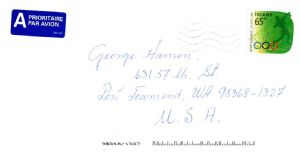 A PRIORITAIRE
PAR AVION
ÍSLAND
65
George Hansen
631 57th St.
Port Townsend, WA 98368-1327
U.S.A.
98368/1327